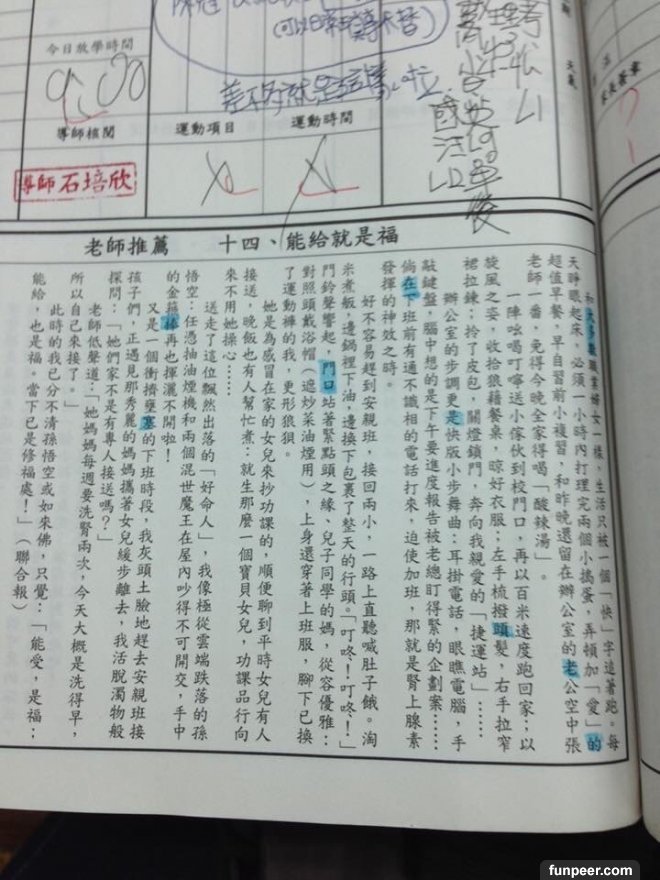 今日放學時間
9:00
導師核閱
導師石培欣
運動項目
運動時間
天氣
家長簽章
？
差不多就是這樣啦
老師推薦　十四、能給就是福
和大多數職業婦女一樣，生活只被一個「快」字追著跑。每
天睜眼起床，必須一小時內打理完兩個小搗蛋，弄頓加「愛」的
超值早餐，早自習前小複習，和昨晚還留在辦公室的老公空中張
老師一番，免得今晚全家得喝「酸辣湯」。
一陣吆喝叮嚀送小傢伙到校門口，再以百米速度跑回家；以
旋風之姿，收拾狼藉餐桌，晾好衣服；左手梳撥頭髮，右手拉窄
裙拉鍊；拎了皮包，關燈鎖門，奔向我親愛的「捷運站」……
辦公室的步調更是快版小步舞曲：耳掛電話，眼瞧電腦，手
敲鍵盤，腦中想的是下午要進度報告被老總盯得緊的企劃案……
倘在下班前有通不識相的電話打來，迫使加班，那就是腎上腺素
發揮的神效之時。
好不容易趕到安親班，接回兩小，一路上直聽喊肚子餓。淘
米煮飯，邊鍋裡下油，邊換下包裹了整天的行頭。「叮咚！叮咚！」
門鈴聲響起，門口站著緊點頭之緣、兒子同學的媽，從容優雅：
對照頭戴浴帽（遮炒菜油煙用），上身還穿著上班服，腳下已換
了運動褲的我，更形狼狽。
她是為感冒在家的女兒來抄功課的，順便聊到平時女兒有人
接送，晚飯也有人幫忙煮：就生那麼一個寶貝女兒，功課品行向
來不用她操心……
送走了這位飄然出落的「好命人」，我像極從雲端跌落的孫
悟空：任憑抽油煙機和兩個混世魔王在屋內吵得不可開交，手中
的金箍棒再也揮灑不開啦！
又是一個衝擠壅塞的下班時段，我灰頭土臉地趕去安親班接
孩子們，正遇見那秀麗的媽媽攜著女兒緩步離去，我活脫濁物般
探問：「她們家不是有專人接送嗎？」
老師低聲道：「她媽媽每週要洗腎兩次，今天大概是洗得早，
所以自己來接了。」
此時的我已分不清孫悟空或如來佛，只覺：「能愛，是福：
能給，也是福。當下已是修福處！」（聯合報）
funpeer.com